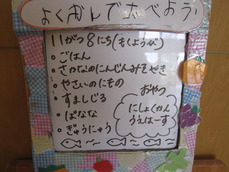 よくかんでたべよう!
11がつ8にち(もくようび)
・ごはん
・さかなのにんじんみそやき
・やさいのにもの
・すましじる
・ばなな
・ぎゅうにゅう
おやつ
にしょくかん
うえはーす